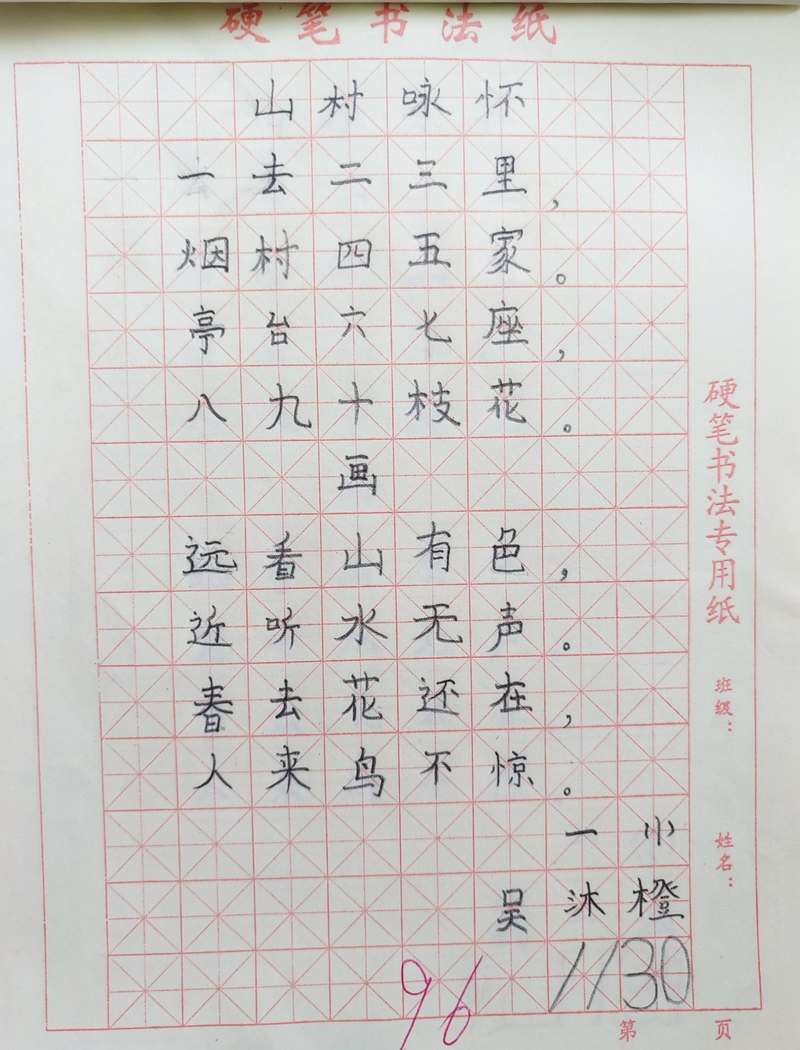 硬笔书法纸
山村咏怀
一去二三里，
烟村四五家。
亭台六七座，
八九十枝花。
画
远看山有色，
近听水无声。
春去花还在，
人来鸟不惊。
一小
吴沐橙
1130
96
硬笔书法专用纸
班级：
姓名：
第 页